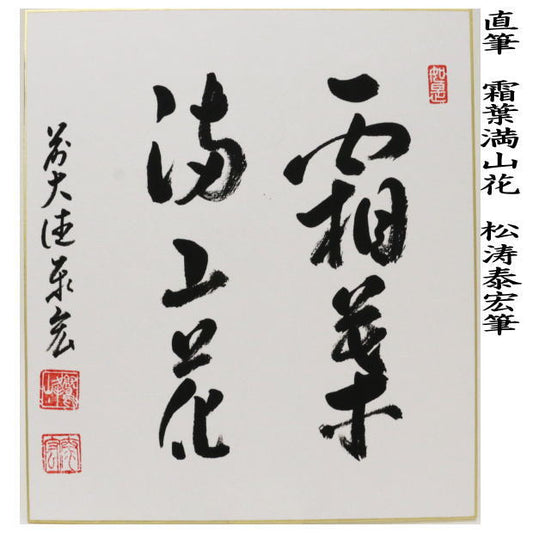 直筆 霜葉満山花 松涛泰宏筆
霜葉
満山花
前大徳泰宏